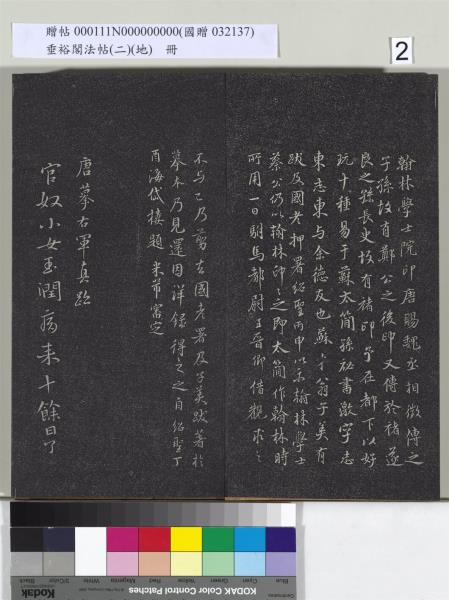 贈帖 000111N000000000(國贈 032137)
垂裕閣法帖(二)(地) 冊
2
翰林學士院印唐賜魏丞相徵傳之
子孫故有鄭公之後印又傳於褚遂
良之孫長史故有褚印予在都下以好
玩十種易于蘇太簡孫祕書激字志
東志東與余德友也蘇才翁子美有
跋及國老押署紹聖丙申以示翰林學士
蔡公仍以翰林印印之即太簡作翰林時
所用一日駙馬都尉王晉卿借觀求之
不与已乃剪去國老署及子美跋著於
摹本乃見還因詳錄得之之自紹聖丁
酉海岱樓題 米芾審定
唐摹右軍真跡
官奴小女玉潤病来十餘日了
Blue
Cyan
Green
Yellow
Red
Magenta
White
3/Color
Black
Kodak Color Control Patches
Kodak